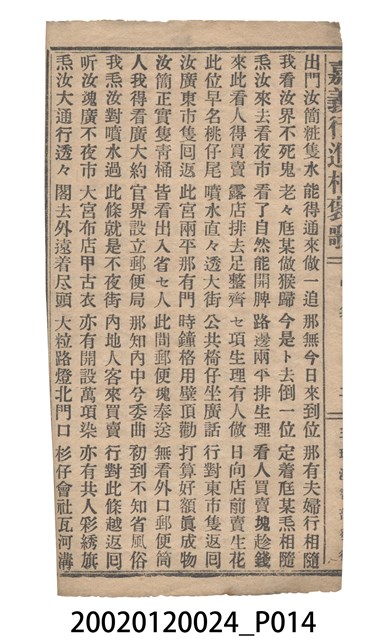 嘉義行進相褒歌
出門汝簡粧隻水 能得通來做一追 那無今日來到位 那有夫婦行相隨
我看汝界不死鬼 老々尫某做猴歸 今是卜去倒一位 定着尫某炁相隨
炁汝來去看夜市 看了自然能開脾 路邊兩平排生理 看人買賣塊趁錢
來此看人得買賣 露店排去足整齊 セ項生理有人做 日向店前賣生花
此位早名桃仔尾 噴水直々透大街 公共椅仔坐廣話 行對東市隻返囘
汝廣東市隻囘返 此宮兩平那有門 時鐘格用壁頂勸 打算好額眞成物
汝簡正實隻青桶 皆看出入省セ人 此間郵便塊奉送 無看外口郵便筒
人我得看廣大約 官界設立郵便局 那知內中兮委曲 初到不知省風俗
我炁汝對噴水過 此條就是不夜街 內地人客來買賣 行對此條越返囘
听汝塊廣不夜市 大宮布店甲古衣 亦有開設萬項染 亦有共人彩綉旗
炁汝大通行透々 閣去外遠着尽頭 大粒路燈北門口 杉仔會社瓦河溝
20020120024_P014